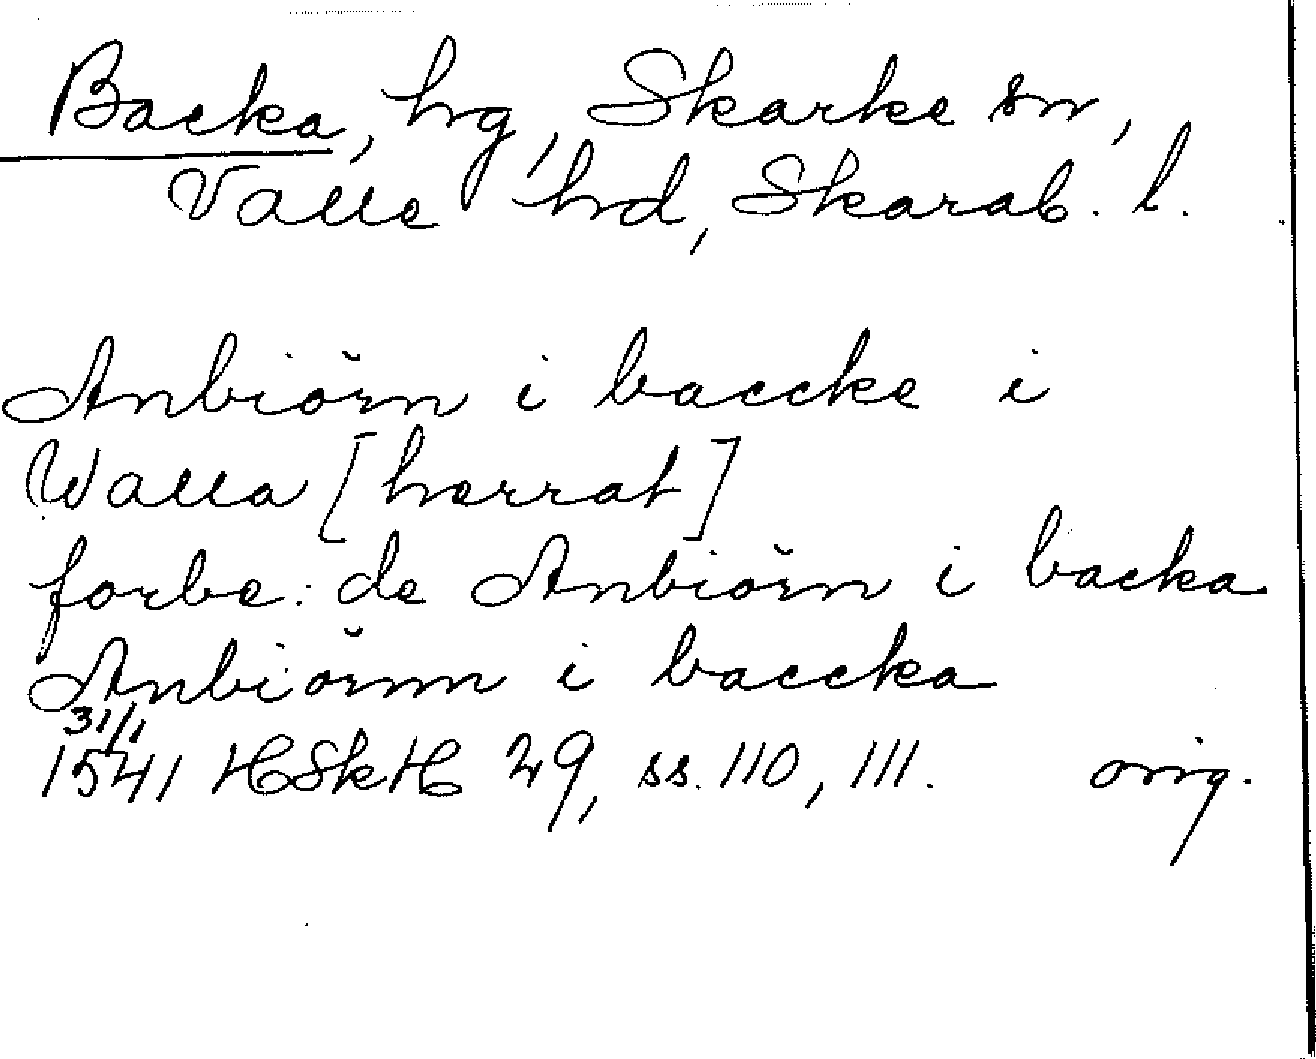 Backa, hg, Skarke sn,
Valle hd, Skarab. l.
Anbiörn i baccke i
Walla [herrat]
forbe: de Anbiörn i backa
Anbiörnn i baccka
31/1
1541 HSkH 29, ss. 110, 111. orig.